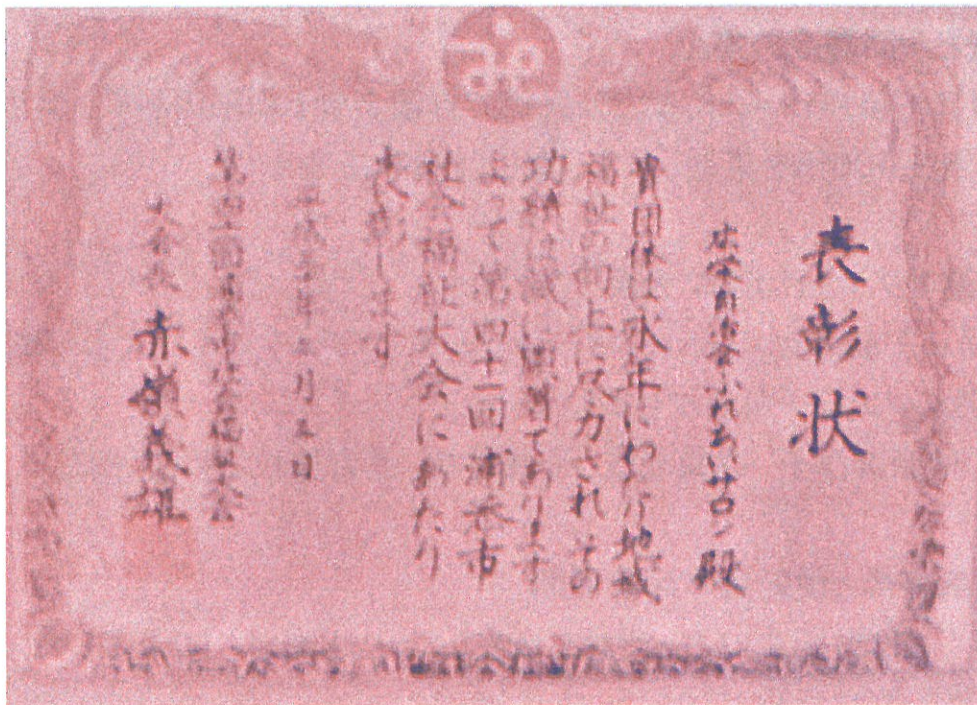 表彰状
自治会ふれあいサロン殿
貴団体は永年にわたり地域
福祉の向上に尽力されその
功績は誠に顕著であります
よって第四十一回浦添市
社会福祉大会にあたり
表彰します
平成 年 月 日
第四十一回浦添市社会福祉大会
大会長 赤嶺義雄